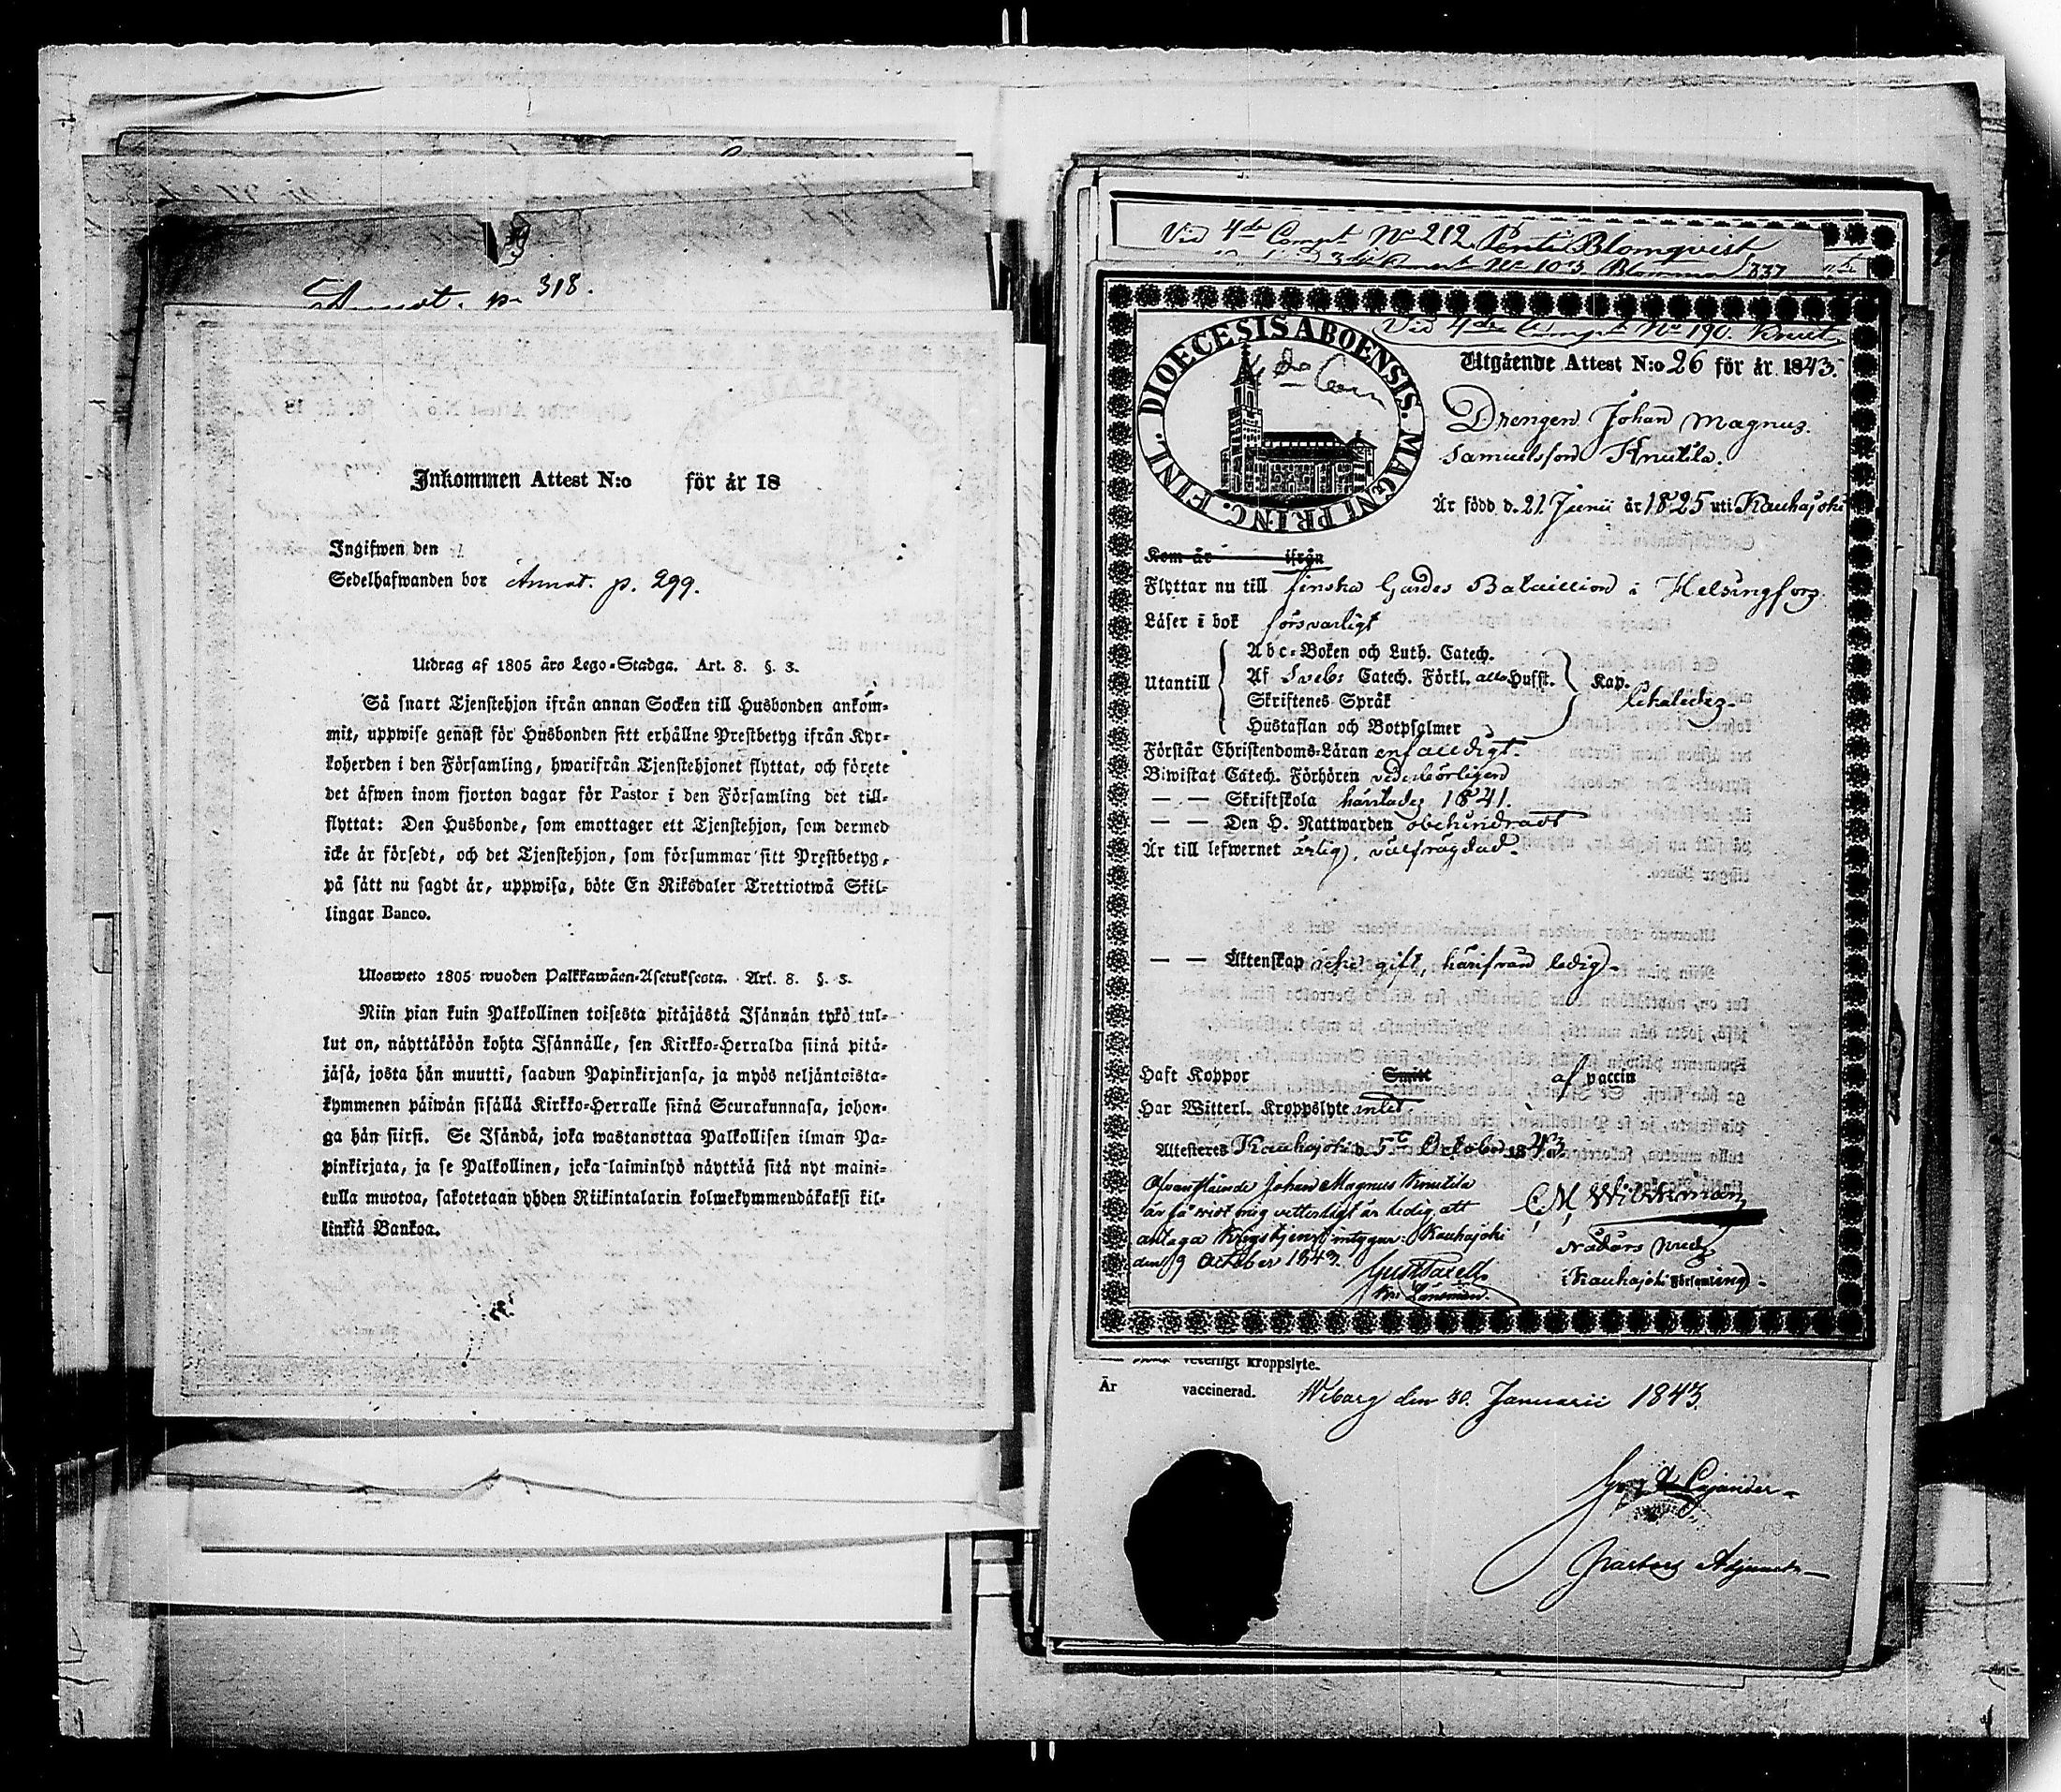 Annot. p. 318.
Inkommen Attest N:o för år 18
Ingifwen den
Sedelhafwanden bor Annot. p. 299.
Utdrag af 1805 års Lego-Stadga. Art. 8. §. 3.
Så snart Tjenstehjon ifrån annan Socken till Husbonden ankom-
mit, uppwise genast för Husbonden sitt erhållne Prestbetyg ifrån Kyr-
koherden i den Församling, hwarifrån Tjenstehjonet flyttat, och förete
det äfwen inom fjorton dagar för Pastor i den Församling det till-
flyttat: Den Husbonde, som emottager ett Tjenstehjon, som dermed
icke är försedt, och det Tjenstehjon, som försummar sitt Prestbetyg,
på sätt nu sagdt är, uppwisa, böte En Riksdaler Trettiotwå Skil-
lingar Banco.
Ulosweto 1805 wuoden Palkkawäen-Asetuksesta. Art. 8. §. 3.
Niin pian kuin Palkollinen toisesta pitäjästä Isännän tykö tul-
lut on, näyttäköön kohta Isännälle, sen Kirkko-Herralda siinä pitä-
jäsä, josta hän muutti, saadun Papinkirjansa, ja myös neljäntoista-
kymmenen päiwän sisällä Kirkko-Herralle siinä Seurakunnasa, johon-
ga hän siirsi. Se Isändä, joka wastanottaa Palkollisen ilman Pa-
pinkirjata, ja se Palkollinen, joka laiminlyö näyttää sitä nyt maini-
tulla muotoa, sakotetaan yhden Riikintalarin kolmekymmendäkaksi kil-
linkiä Bankoa.
Vid 4de Compt No 212 Pentti Blomqvist
No 103 Blomma 337
Vid 4de Compt No 190. Knut
DIOECESIS ABOENSIS. MAGNI PRINC. FINL.
4de Com
Utgående Attest N:o 26 för år 1843.
Drengen Johan Magnus
Samuelsson Knutila.
Är född d. 21 Junii år 1825 uti Kauhajoki
Kom år ifrån
Flyttar nu till Finska Gardes Bataillion i Helsingfors
Läser i bok försvarligt
Utantill
Abc-Boken och Luth. Catech.
Af Svebi Catech. Förkl. alla Hufst. Kap.
Skriftenes Språk
Hustaflan och Botpsalmer
Förstår Christendoms-Läran enfaldigt.
Biwistat Catech. Förhören vederbörligen
— — Skriftskola härstädes 1841.
— — Den H. Nattwarden obehindradt
Är till lefwernet ärlig, välfrägdad.
— — Äktenskap icke gift, härifrån ledig.
Haft Koppor Smitt af vaccin
Har Witterl. Kroppslyte intet.
Attesteras Kauhajoki d. 5te October 1843
C. M. Wibbman
Nådårs pred.
i Kauhajoki Församling.
Ofvanstående Johan Magnus Knutila
är så vidt mig vetterligt är ledig att
antaga Krigstjenst intygar: Kauhajoki
den 9 October 1843.
Länsman.
veterligt kroppslyte.
Är vaccinerad. Wiborg den 30. Januarii 1843.
Cajander
Pastors Adjunct